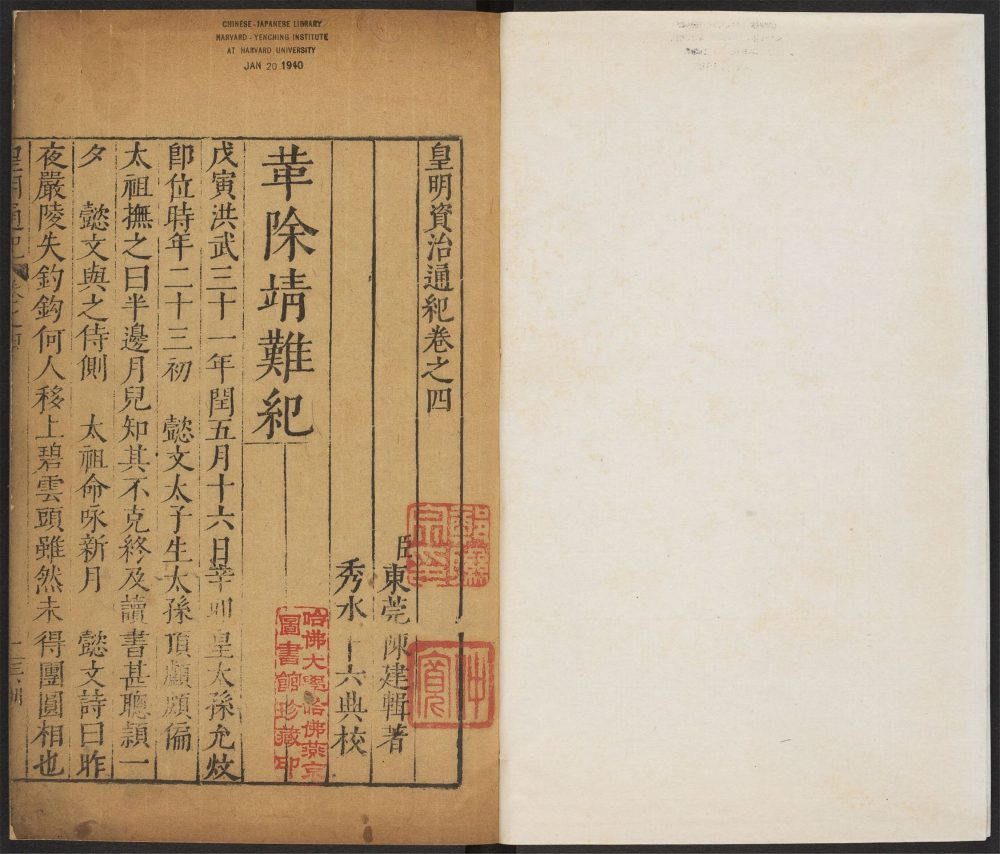 CHINESE-JAPANESE LIBRARY
HARVARD-YENCHING INSTITUTE
AT HARVARD UNIVERSITY
JAN 20 1940
皇明資治通紀卷之四
臣東莞陳建輯著
秀水卜大典校
革除靖難紀
戊寅洪武三十一年閏五月十六日辛卯皇太孫允炆
卽位時年二十三初　懿文太子生太孫頂顱頗偏
太祖撫之曰半邊月兒知其不克終及讀書甚聰頴一
夕　懿文與之侍側　太祖命咏新月　懿文詩曰昨
夜嚴陵失釣鈎何人移上碧雲頭雖然未得團圓相也
皇明通紀
哈佛大學哈佛燕京
圖書館珍藏印